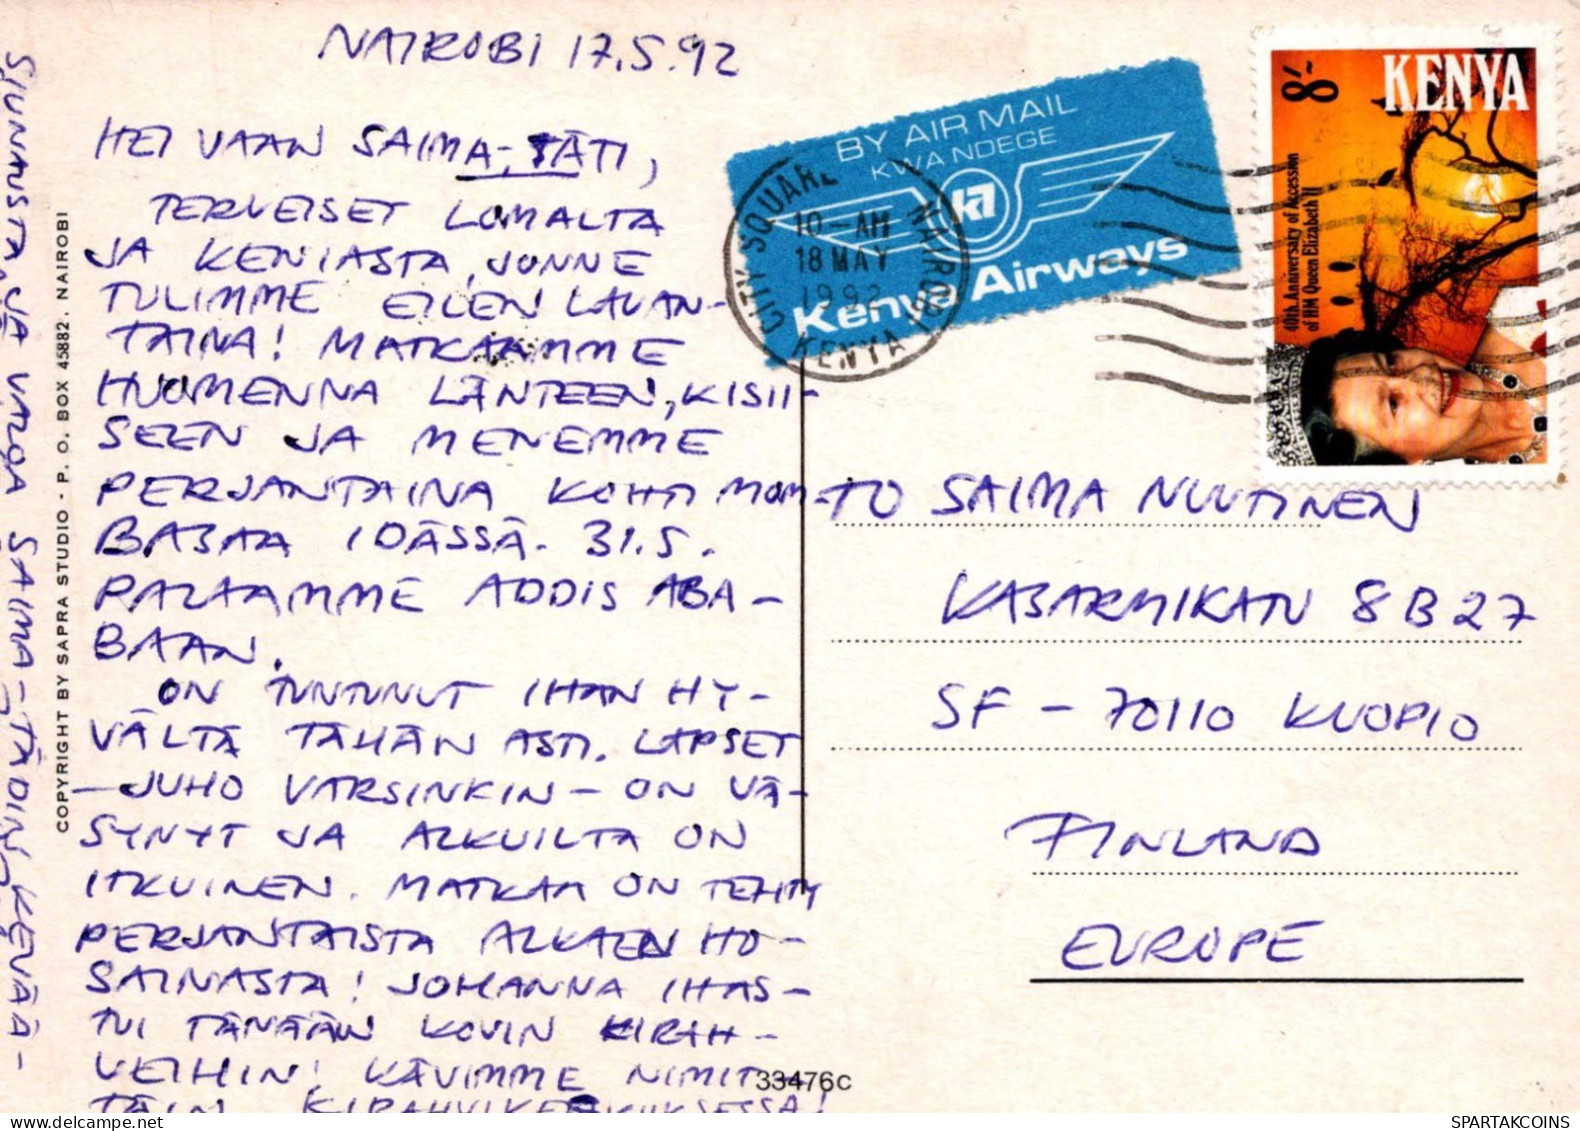 NAIROBI 17.5.92
HEI VAAN SAIMA-TÄTI,
TERVEISET LOMALTA
JA KENIASTA, JONNE
TULIMME EILEN LAUAN-
TAINA! MATKAAMME
HUOMENNA LÄNTEEN, KISII-
SEEN JA MENEMME
PERJANTAINA KOHTI MOM-
BASAA IDÄSSÄ. 31.5.
PALAAMME ADDIS ABA-
BAAN.
ON TUNTUNUT IHAN HY-
VÄLTÄ TÄHÄN ASTI. LAPSET
- JUHO VARSINKIN - ON VÄ-
SYNYT JA ALKUILTA ON
ITKUINEN. MATKAA ON TEHTY
PERJANTAISTA ALKAEN HO-
SAINASTA! JOHANNA IHAS-
TUI TÄNÄÄN KOVIN KIRAH-
VEIHIN! KÄVIMME NIMIT-
TÄIN KIRAHVIKESKUKSESSA!
SIUNAUSTA JA VALOA SAIMA-TÄDIN KEVÄÄ-
COPYRIGHT BY SAPRA STUDIO - P. O. BOX 45882, NAIROBI
33476c
BY AIR MAIL
KWA NDEGE
KA
Kenya Airways
CITY SQUARE NAIROBI
10-AM
18 MAY
1992
KENYA
KENYA
8/-
40th Anniversary of Accession
of HM Queen Elizabeth II
TO SAIMA NUUTINEN
KASARMIKATU 8 B 27
SF - 70110 KUOPIO
FINLAND
EUROPE
SPARTAKCOINS